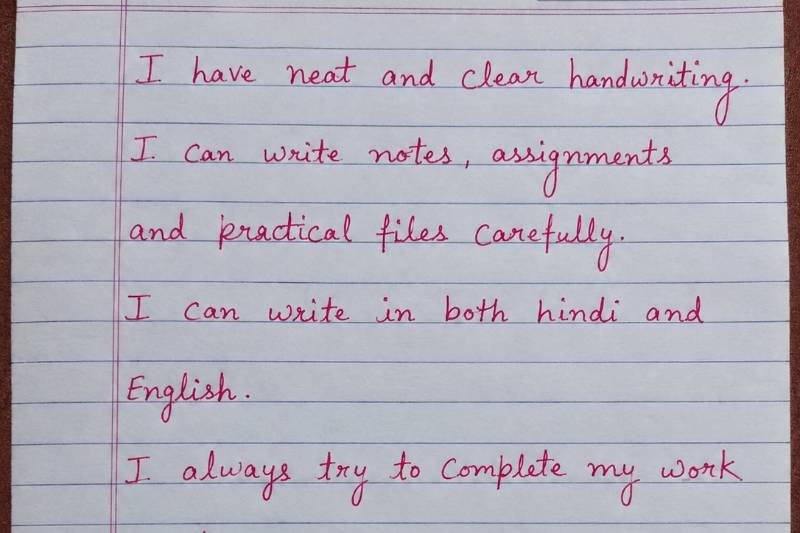 I have neat and clear handwriting.
I can write notes, assignments
and practical files carefully.
I can write in both hindi and
English.
I always try to complete my work